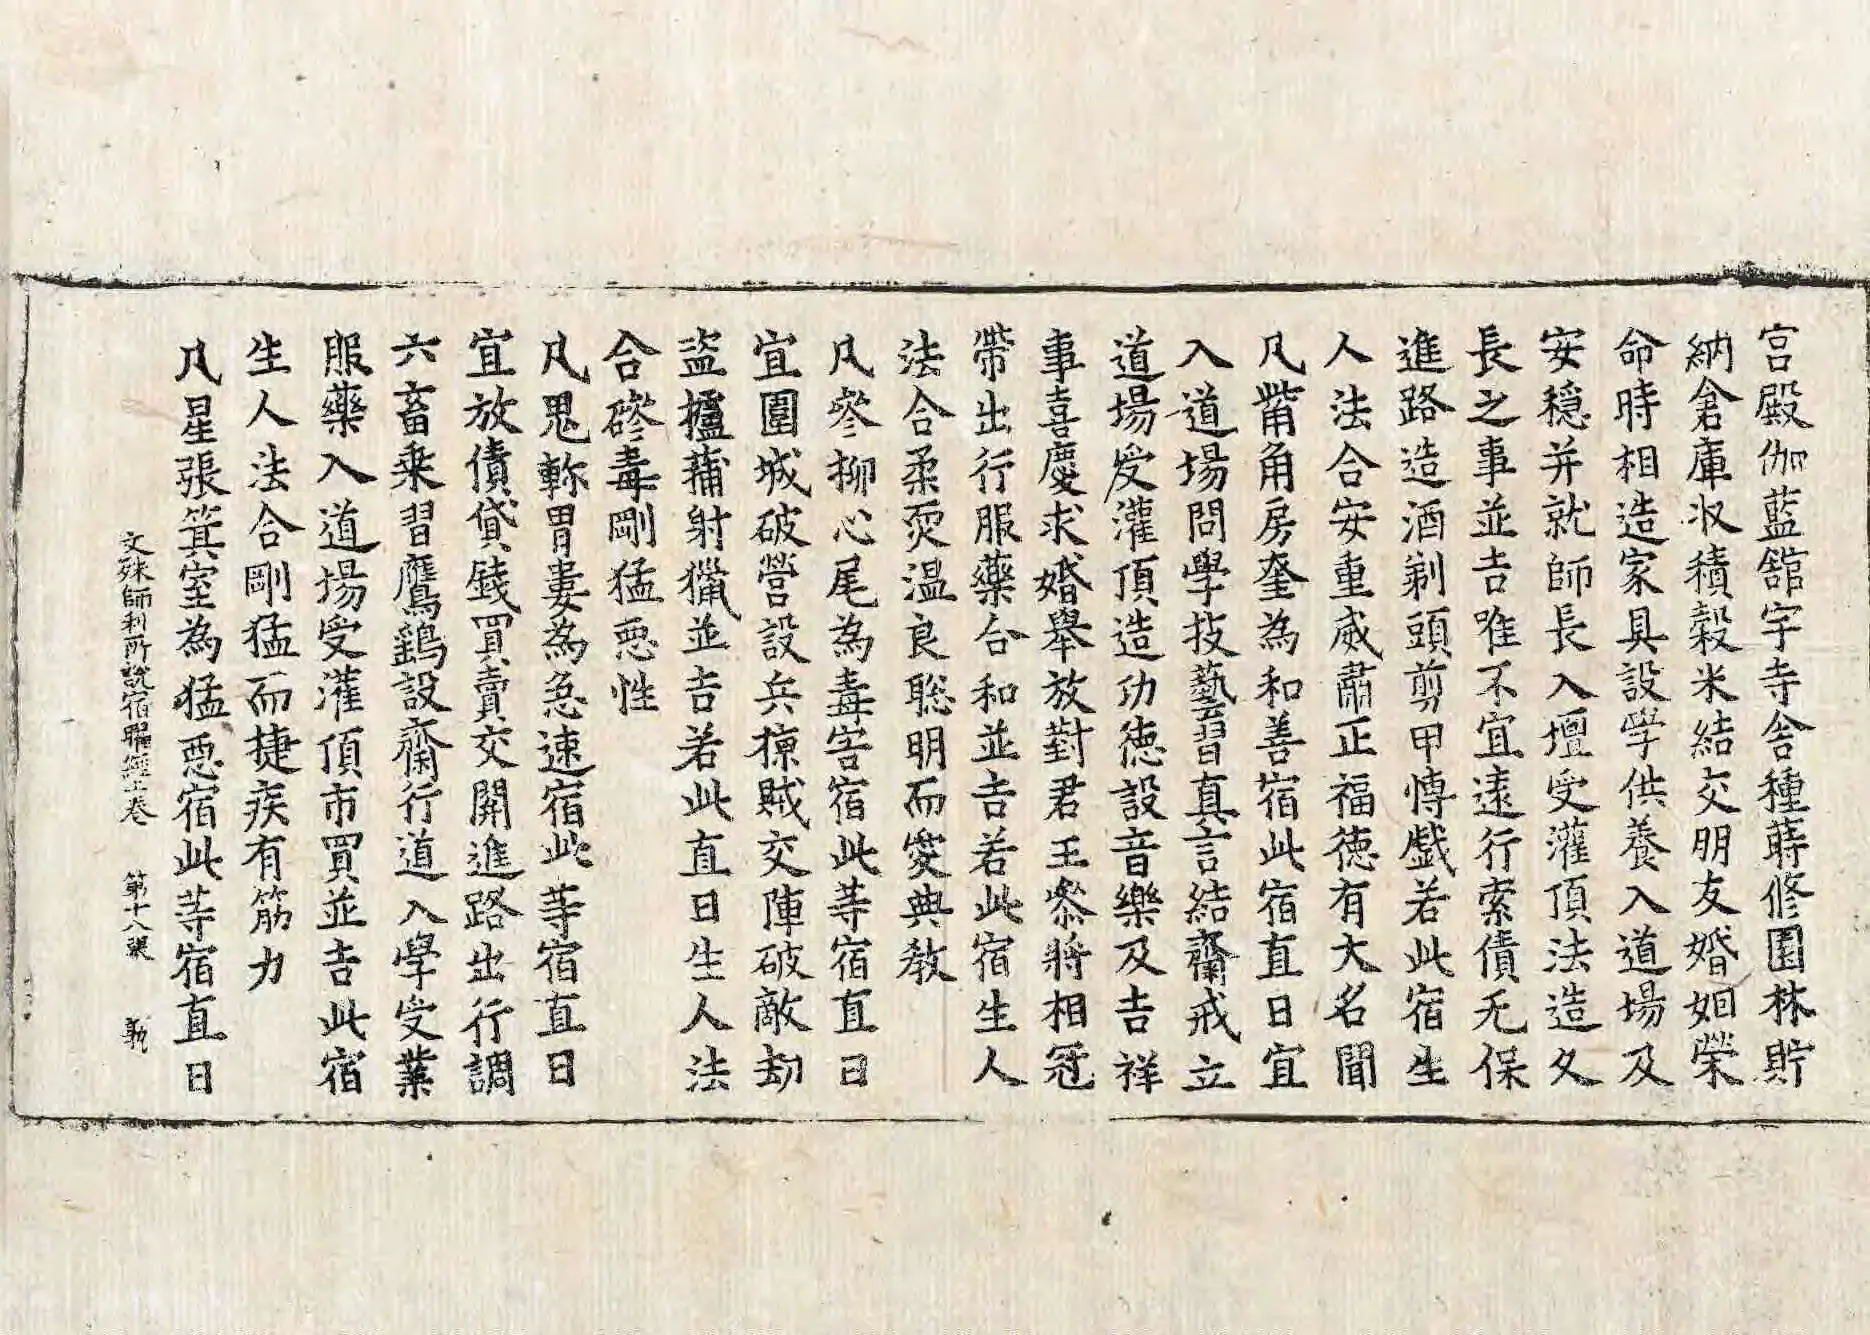 宮殿伽藍舘宇寺舍種蒔修園林貯
納倉庫収積穀米結交朋友婚姻榮
命時相造家具設學供養入道場及
安穩并就師長入壇受灌頂法造久
長之事並吉唯不宜遠行索債无保
進路造酒剃頭剪甲愽戲若此宿生
人法合安重威肅正福德有大名聞
凡觜角房奎為和善宿此宿直日宜
入道場問學技藝習真言結齋戒立
道場受灌頂造功德設音樂及吉祥
事喜慶求婚舉放對君王叅將相冠
帶出行服藥合和並吉若此宿生人
法合柔耎温良聡明而愛典教
凡參柳心尾為毒害宿此等宿直日
宜圍城破營設兵掠賊交陣破敵劫
盜摴蒱射獵並吉若此直日生人法
合磣毒剛猛惡性
凡鬼軫胃婁為急速宿此等宿直日
宜放債貸錢買賣交関進路出行調
六畜乗習鷹鷂設齋行道入學受業
服藥入道場受灌頂市買並吉此宿
生人法合剛猛而捷疾有筋力
凡星張箕室為猛惡宿此等宿直日
文殊師利所說宿曜經上卷 第十八張 執